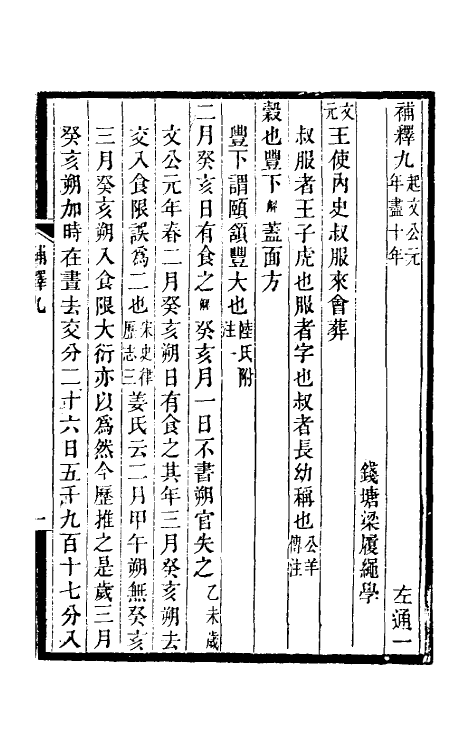 補釋九 起文公元年盡十年 左通一
錢塘梁履繩學
文元 王使內史叔服來會葬
叔服者王子虎也服者字也叔者長幼稱也 公羊傳注
穀也豐下 解 蓋面方
豐下謂頤頷豐大也 陸氏附注一
二月癸亥日有食之 解 癸亥月一日不書朔官失之 乙未歲
文公元年春二月癸亥朔日有食之其年三月癸亥朔去
交入食限誤為二也 宋史律歷志三 姜氏云二月甲午朔無癸亥
三月癸亥朔入食限大衍亦以為然今歷推之是歲三月
癸亥朔加時在晝去交分二十六日五千九百十七分入
補釋九
一